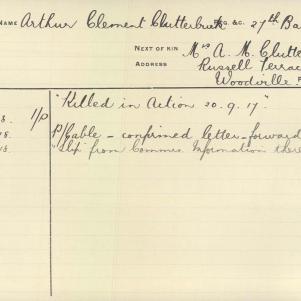 NAME Arthur Clement Clutterbuck R. & C. 27th Ba
NEXT OF KIN Mrs A. M. Clutte
ADDRESS Russell Terrac
Woodville.
"Killed in Action 20.9.17"
8. 1/0 P/Cable - confirmed letter - forward
18. "slip from Commrs Information there
18.